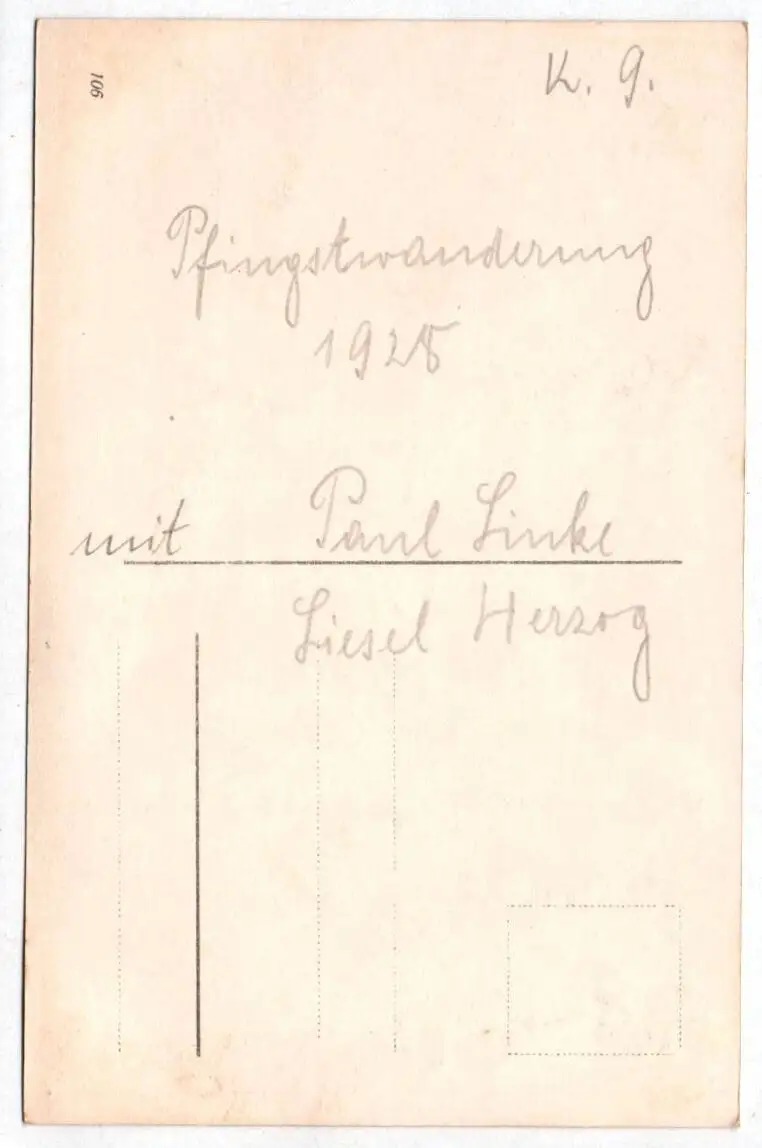 106
K. 9.
Pfingstwanderung
1928
mit Paul Linke
Liesel Herzog